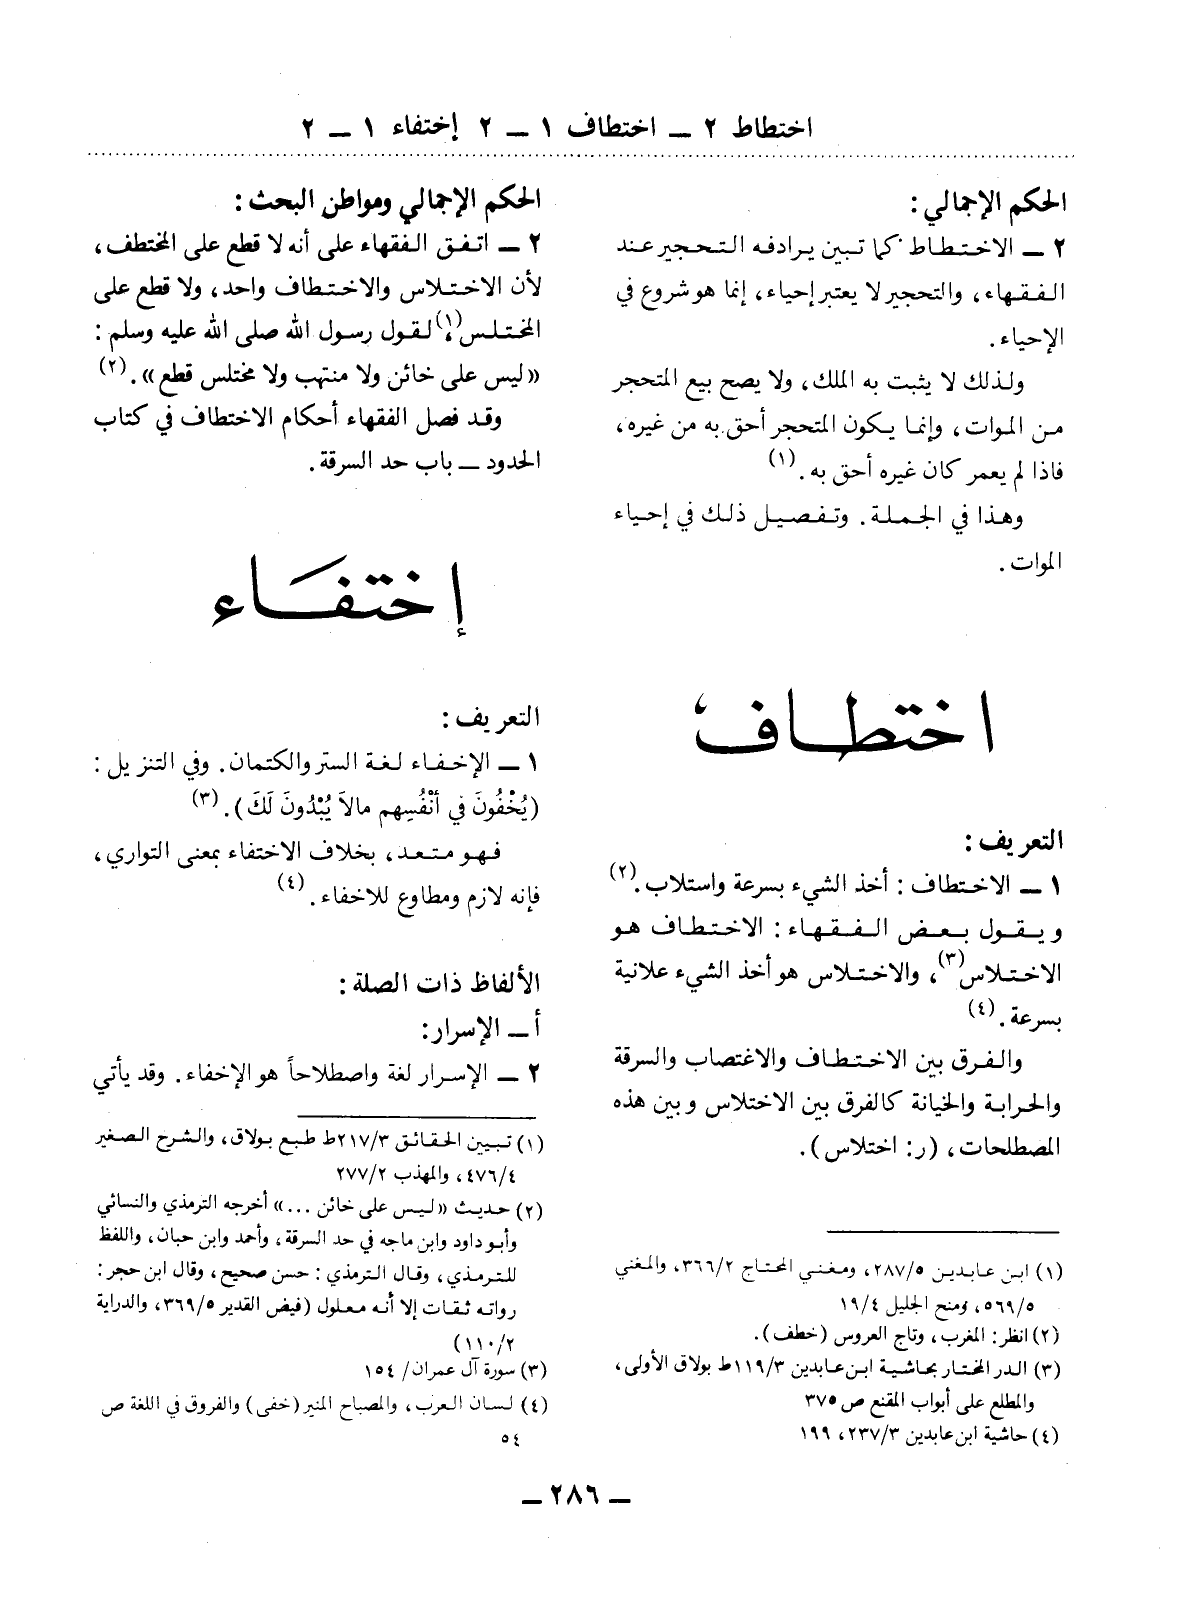 اختطاط ٢ ــ اختطاف ١ ــ ٢ إختفاء ١ ــ ٢
الحكم الإجمالي :
٢ ــ الاختطاط كما تبين يرادفه التحجير عند
الفقهاء، والتحجير لا يعتبر إحياء، إنما هو شروع في
الإحياء .
ولذلك لا يثبت به الملك، ولا يصح بيع المتحجر
من الموات، وإنما يكون المتحجر أحق به من غيره،
فاذا لم يعمر كان غيره أحق به . (١)
وهذا في الجملة . وتفصيل ذلك في إحياء
الموات .
اختطاف
التعريف :
١ ــ الاختطاف : أخذ الشيء بسرعة واستلاب . (٢)
ويقول بعض الفقهاء : الاختطاف هو
الاختلاس (٣)، والاختلاس هو أخذ الشيء علانية
بسرعة . (٤)
والفرق بين الاختطاف والاغتصاب والسرقة
والحرابة والخيانة كالفرق بين الاختلاس وبين هذه
المصطلحات، (ر: اختلاس) .
(١) ابن عابدين ٢٨٧/٥، ومغني المحتاج ٣٦٦/٢، والمغني
٥٦٩/٥، ومنح الجليل ١٩/٤
(٢) انظر : المغرب، وتاج العروس (خطف) .
(٣) الدر المختار بحاشية ابن عابدين ١١٩/٣ط بولاق الأولى،
والمطلع على أبواب المقنع ص ٣٧٥
(٤) حاشية ابن عابدين ٢٣٧/٣، ١٩٩
الحكم الإجمالي ومواطن البحث :
٢ ــ اتفق الفقهاء على أنه لا قطع على المختطف،
لأن الاختلاس والاختطاف واحد، ولا قطع على
المختلس (١)، لقول رسول الله صلى الله عليه وسلم :
«ليس على خائن ولا منتهب ولا مختلس قطع» . (٢)
وقد فصل الفقهاء أحكام الاختطاف في كتاب
الحدود ــ باب حد السرقة .
إختفاء
التعريف :
١ ــ الإخفاء لغة الستر والكتمان . وفي التنزيل :
(يُخْفُونَ في أنْفُسِهم مالاَ يُبْدُونَ لَكَ) . (٣)
فهو متعد، بخلاف الاختفاء بمعنى التواري،
فإنه لازم ومطاوع للاخفاء . (٤)
الألفاظ ذات الصلة :
أ ــ الإسرار:
٢ ــ الإسرار لغة واصطلاحاً هو الإخفاء . وقد يأتي
(١) تبيين الحقائق ٢١٧/٣ط طبع بولاق، والشرح الصغير
٤٧٦/٤، والمهذب ٢٧٧/٢
(٢) حديث «ليس على خائن ...» أخرجه الترمذي والنسائي
وأبو داود وابن ماجه في حد السرقة، وأحمد وابن حبان، واللفظ
للترمذي، وقال الترمذي : حسن صحيح، وقال ابن حجر :
رواته ثقات إلا أنه معلول (فيض القدير ٣٦٩/٥، والدراية
١١٠/٢)
(٣) سورة آل عمران/ ١٥٤
(٤) لسان العرب، والمصباح المنير (خفى) والفروق في اللغة ص
٥٤
ــ ٢٨٦ ــ